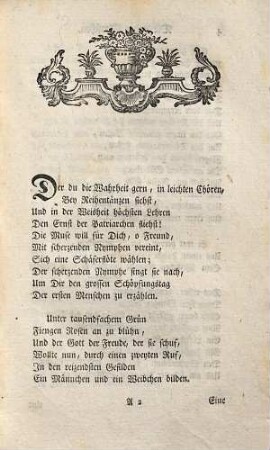 Der du die Wahrheit gern, in leichten Chören,
Bey Reihentänzen siehst,
Und in der Weisheit höchsten Lehren
Den Ernst der Patriarchen fliehst!
Die Muse will für Dich, o Freund,
Mit scherzenden Nymphen vereint,
Sich eine Schäferflöte wählen;
Der scherzenden Nymphe singt sie nach,
Um Dir den grossen Schöpfungstag
Der ersten Menschen zu erzählen.
Unter tausendfachem Grün
Fiengen Rosen an zu blühn,
Und der Gott der Freude, der sie schuf,
Wollte nun, durch einen zweyten Ruf,
In den reizendsten Gefilden
Ein Männchen und ein Weibchen bilden.
A 2 Eine